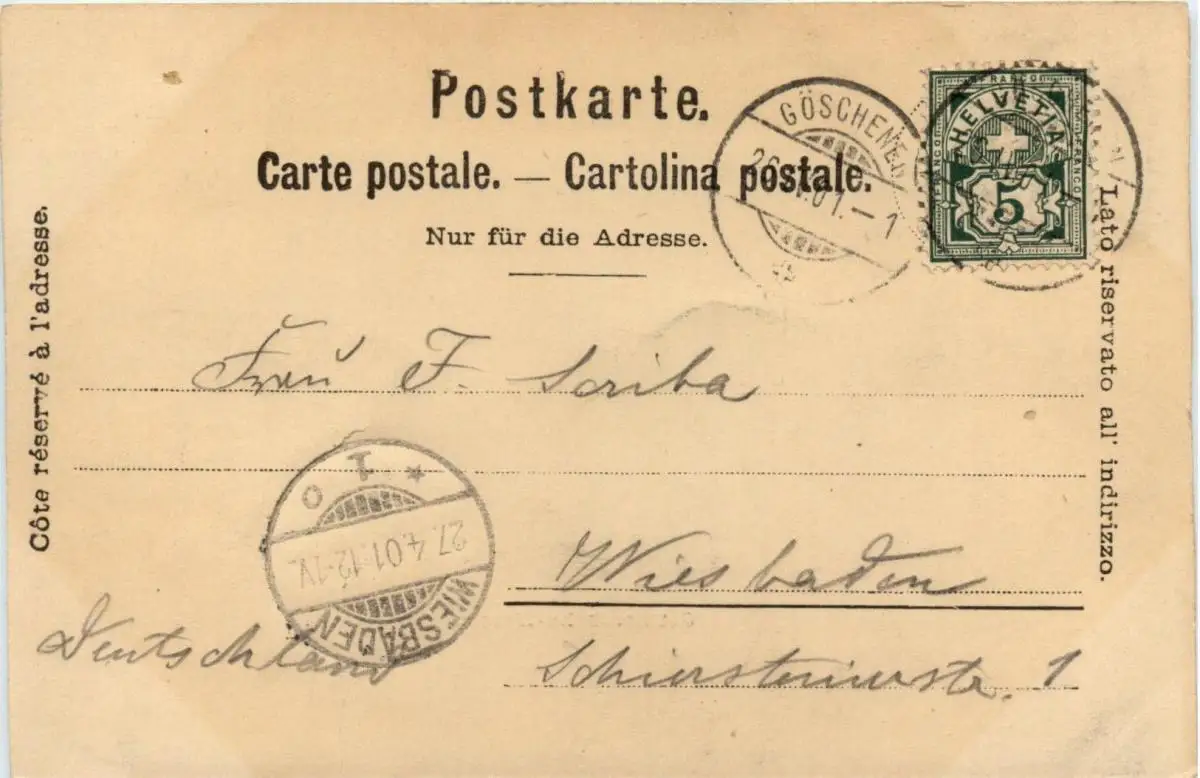 Postkarte.
Carte postale. — Cartolina postale.
Nur für die Adresse.
GÖSCHENEN
01.–1
FRANCO
HELVETIA
FRANCO
FRANCO
5
Côte réservé à l'adresse.
Lato riservato all' indirizzo.
Frau F. Scriba
* 1 o
27.4.01.12-1V.
WIESBADEN
Wiesbaden
Deutschland
Schiersteinerstr. 1